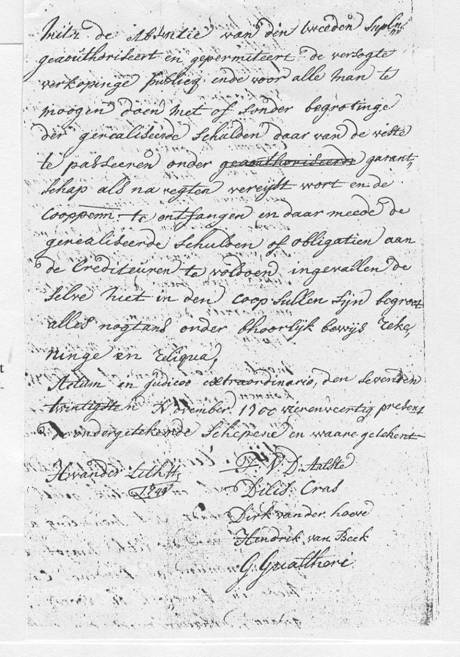 mitz de absentie van den tweeden Suplnt
geauthoriseert en gepermiteert de versogte
verkopinge publicq ende voor alle man te
moogen doen met of sonder begrotinge
der gerealiseerde schulden daar van de veste
te passeeren onder geauthoriseerde garant
schap als na regten vereijst wort en de
Cooppenn: te ontfangen en daar meede de
gerealiseerde schulden of obligatien aan
de Crediteuren te voldoen ingevallen de
selve niet in den coop sullen sijn begroot
alles nogtans onder bhoorlijk bewijs reke
ninge en reliqua,
Actum in judicio extraordinario, den sevenden
twintigsten November, 1700 vierenveertig present
ondergetekende Schepene en waare getekent
H: vander Lith
1744
V: D: Aalst
Dilis: Cras
Dirk vander hoeve
Hendrik van Beek
G: Gualtheri